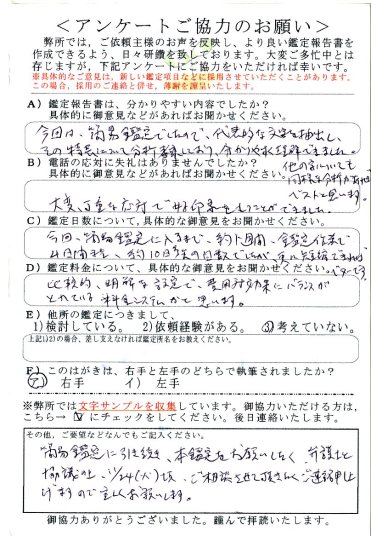 ＜アンケートご協力のお願い＞
弊所では，ご依頼主様のお声を反映し、より良い鑑定報告書を
作成できるよう、日々研鑽を致しております。大変ご多忙中とは
存じますが、下記アンケートにご協力をいただければ幸いです。
※具体的なご意見は、新しい鑑定項目などに採用させていただくことがあります。
この場合、採用のご連絡と併せ，薄謝を謹呈いたします。
A）鑑定報告書は、分かりやすい内容でしたか？
具体的に御意見などがあればお聞かせください。
今回は、簡易鑑定でしたので、代表的な文字を抽出し、
その特長について分析 しており、分かりやすく理解できました。
他の字についても
同様な分析があれば
ベストと思います。
B）電話の応対に失礼はありませんでしたか？
具体的に御意見などがあればお聞かせください。
大変、丁重な応対で好印象をもつことができました。
C）鑑定日数について，具体的な御意見をお聞かせください。
今回、簡易鑑定に入るまで、約1週間、鑑定結果まで
4日間程、約10日程の日数でしたが、更に短縮できれば
ベターです。
D）鑑定料金について、具体的な御意見をお聞かせください。
比較的、明確な設定で、費用対効果にバランスが
とれている料金システムかと思います。
E）他所の鑑定につきまして、
1)検討している。 2)依頼経験がある。 3)考えていない。
上記1)2)の場合、差し支えなければ鑑定所名をお教えください。
F）このはがきは、右手と左手のどちらで執筆されましたか？
ア） 右手 イ） 左手
※弊所では文字サンプルを収集しています。御協力いただける方は，
こちら→ ☑ にチェックをしてください。後日連絡いたします。
その他、ご要望などなんでもご記入ください。
簡易鑑定に引き続き、本鑑定をお願いしたく 弁護士と
協議の上、11/24(火)頃、ご相談させて頂きたくご連絡申し
上げますので宜しくお願いします。
御協力ありがとうございました。謹んで拝読いたします。